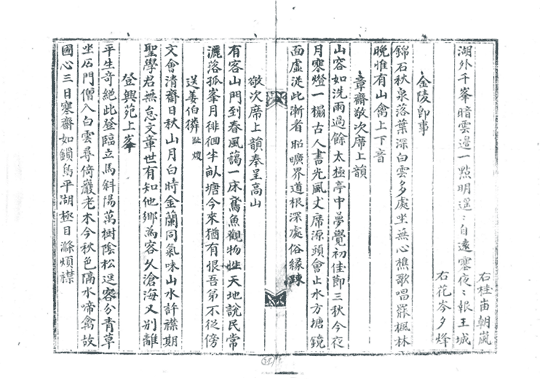 右亩朝嵐
湖外千峯暗雲邊一點明遥自遠寒夜報王城
右花岑夕烽
金陵即事
錦石秋泉落葉深白雲多處坐無心樵歌唱罷楓林
晩惟有山禽上下音
章齋敬次席上韻
山容如洗雨過餘太極亭中夢覺初佳節三秋今夜
月寒燈一榻古人書光風丈席源頭會止水方塘鏡
面虛從此漸看昭曠界道根深處俗緣踈
敬次席上韻奉呈高山
有客山門到春風謁一床鳶魚觀物妙天地說民常
灑落孤峯月徘徊半畒塘今來猶有恨吾弟不從傍
送姜伯
文會清齋日秋山月白時金蘭同氣味山水許襟期
聖學君無怠文章世有知他鄉爲客久滄海又別離
登興苑上峯
平生奇絶此登臨立馬斜陽萬樹陰松逕客分青草
坐石門僧入白雲尋倚巖老木今秋色隔水啼禽故
國心三日寒齋如鎖鳥平湖極目滌煩襟